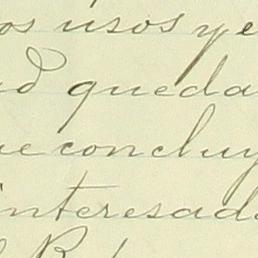 os usos y e
ad queda
ue concluy
interesad